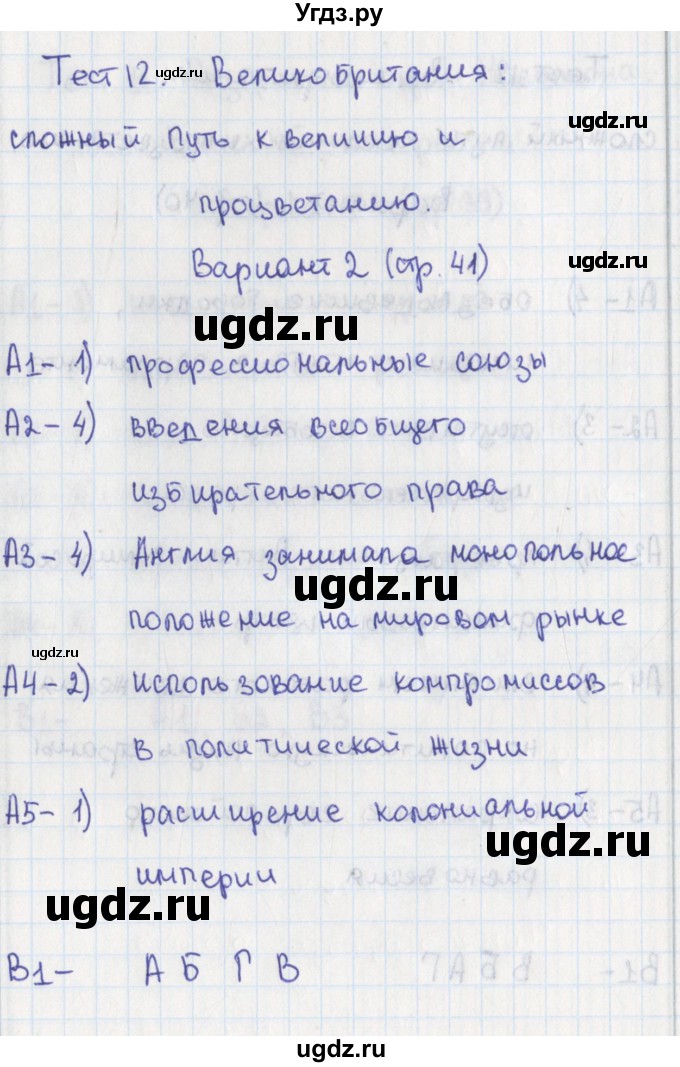 Угдз.ру
Тест 12. ugdz.ru Великобритания:
сложный путь к величию и ugdz.ru
ugdz.ru процветанию.
Вариант 2 (стр. 41)
ugdz.ru
А1- 1) профессиональные союзы
А2- 4) введения всеобщего
избирательного права
А3- 4) Англия занимала монопольное
ugdz.ru
положение на мировом рынке
ugdz.ru
А4- 2) использование компромиссов
в политической жизни
А5- 1) расширение колониальной
ugdz.ru
империи
ugdz.ru
В1- А Б Г В
ugdz.ru
ugdz.ru